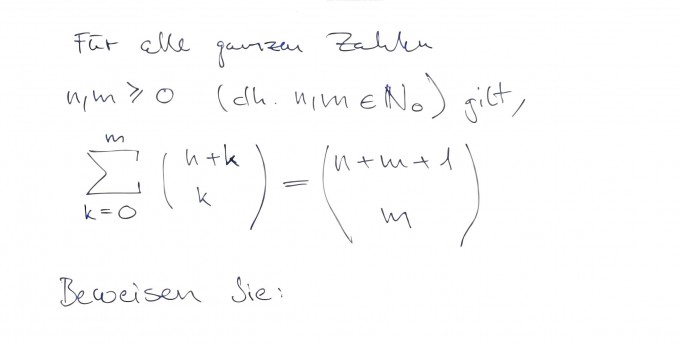 Für alle ganzen Zahlen
n,m ≥ 0 (dh. n,m ∈ ℕ₀) gilt,
m
∑ (n+k) = (n+m+1)
k=0 k m
Beweisen Sie: